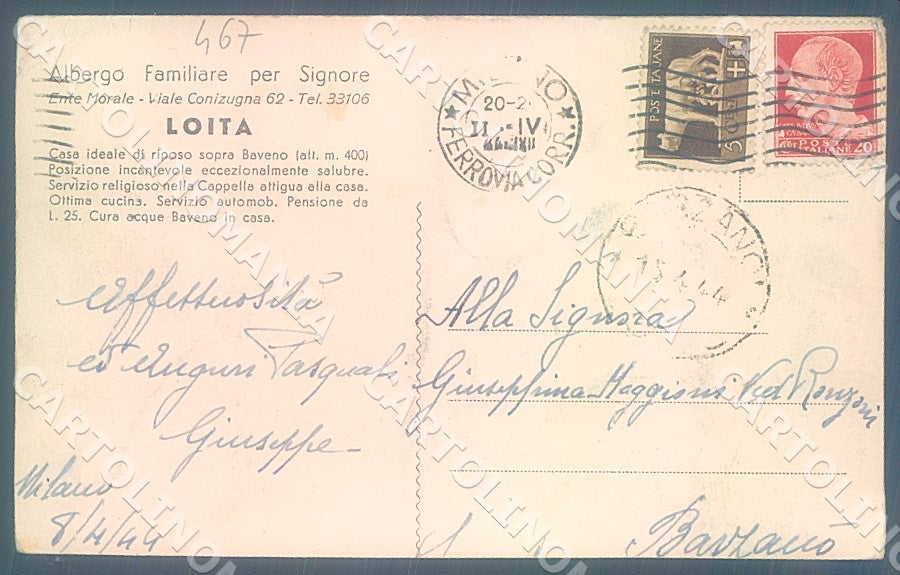 467
Albergo Familiare per Signore
Ente Morale - Viale Conizugna 62 - Tel. 33106
LOITA
Casa ideale di riposo sopra Baveno (alt. m. 400)
Posizione incantevole eccezionalmente salubre.
Servizio religioso nella Cappella attigua alla casa.
Ottima cucina. Servizio automob. Pensione da
L. 25. Cura acque Baveno in casa.
Affettuosità
ed Auguri Pasquali
Giuseppe
Milano
8/4/44
MILANO
20-2
II -IV
FERROVIA CORR.
POSTE ITALIANE
5
POSTE
ITALIANE 20
BARZANO
13.4.44
Alla Signora
Giuseppina Maggioni Ved Ronzoni
Barzanò
CARTOLINOMANIA